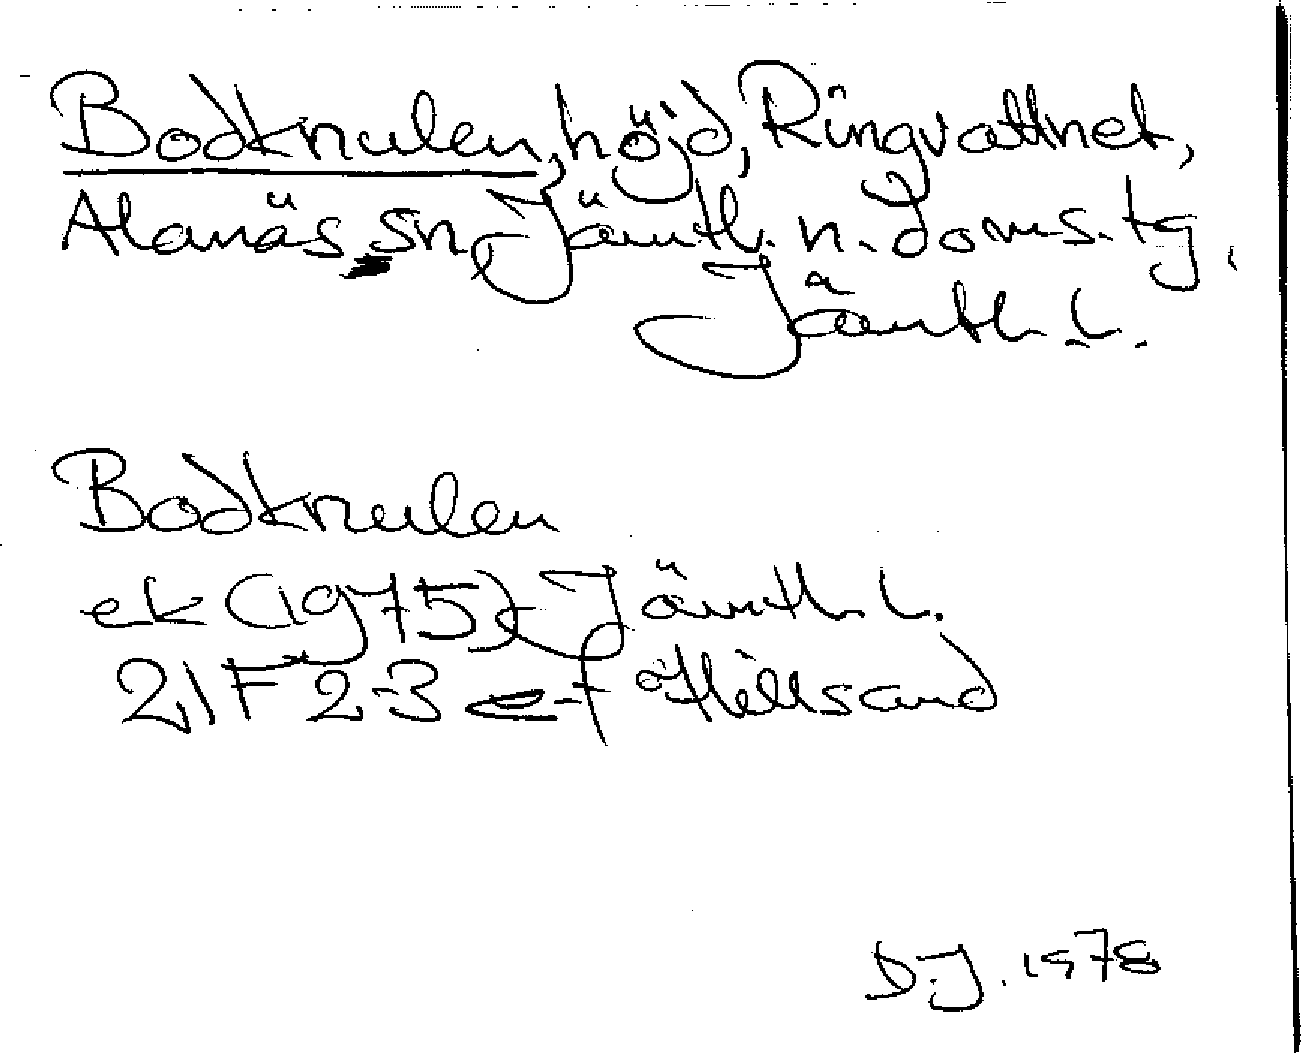 Bodknulen, höjd, Ringvattnet,
Alanäs sn, Jämtl. n. doms. tg.
Jämtl. l.
Bodknulen
ek (1975) Jämtl. l.
21F 2-3 e-f Hillsand
D.J. 1978